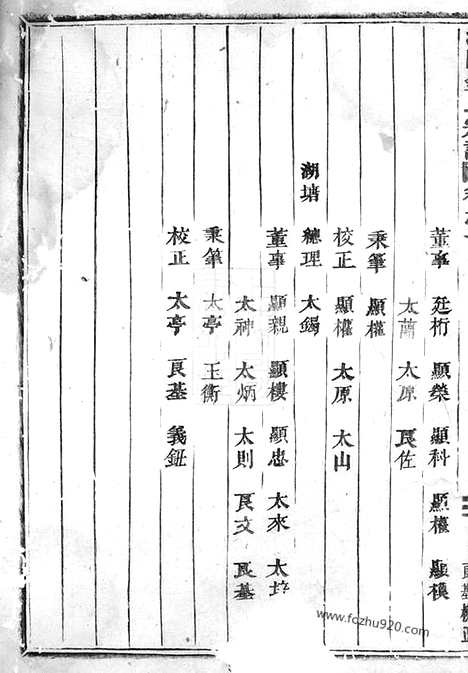 董事 廷桁 顯榮 顯科 顯權 顯模
太蘭 太原 良佐
秉筆 顯權
校正 顯權 太原 太山
湖塘 總理 太錫
董事 顯親 顯樓 顯忠 太來 太垶
太神 太炳 太則 良文 良基
秉筆 太亭 玉衡
校正 太亭 良基 義鈺
www.fczhu920.com